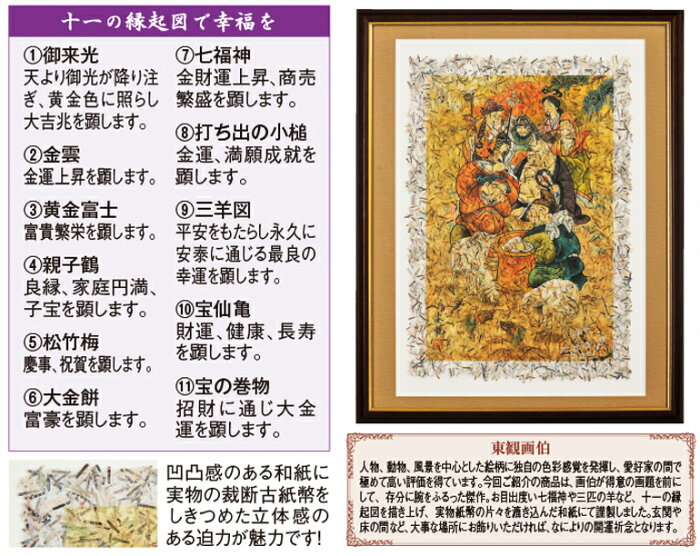 十一の縁起図で幸福を
①御来光
天より御光が降り注
ぎ、黄金色に照らし
大吉兆を顕します。
②金雲
金運上昇を顕します。
③黄金富士
富貴繁栄を顕します。
④親子鶴
良縁、家庭円満、
子宝を顕します。
⑤松竹梅
慶事、祝賀を顕します。
⑥大金餅
富豪を顕します。
⑦七福神
金財運上昇、商売
繁盛を顕します。
⑧打ち出の小槌
金運、満願成就を
顕します。
⑨三羊図
平安をもたらし永久に
安泰に通じる最良の
幸運を顕します。
⑩宝仙亀
財運、健康、長寿
を顕します。
⑪宝の巻物
招財に通じ大金
運を顕します。
凹凸感のある和紙に
実物の裁断古紙幣を
しきつめた立体感の
ある迫力が魅力です!
東観画伯
人物、動物、風景を中心とした絵柄に独自の色彩感覚を発揮し、愛好家の間で
極めて高い評価を得ています。今回ご紹介の商品は、画伯が得意の画題を前に
して、存分に腕をふるった傑作。お目出度い七福神や三匹の羊など、十一の縁
起図を描き上げ、実物紙幣の片々を漉き込んだ和紙にて謹製しました。玄関や
床の間など、大事な場所にお飾りいただければ、なによりの開運祈念となります。